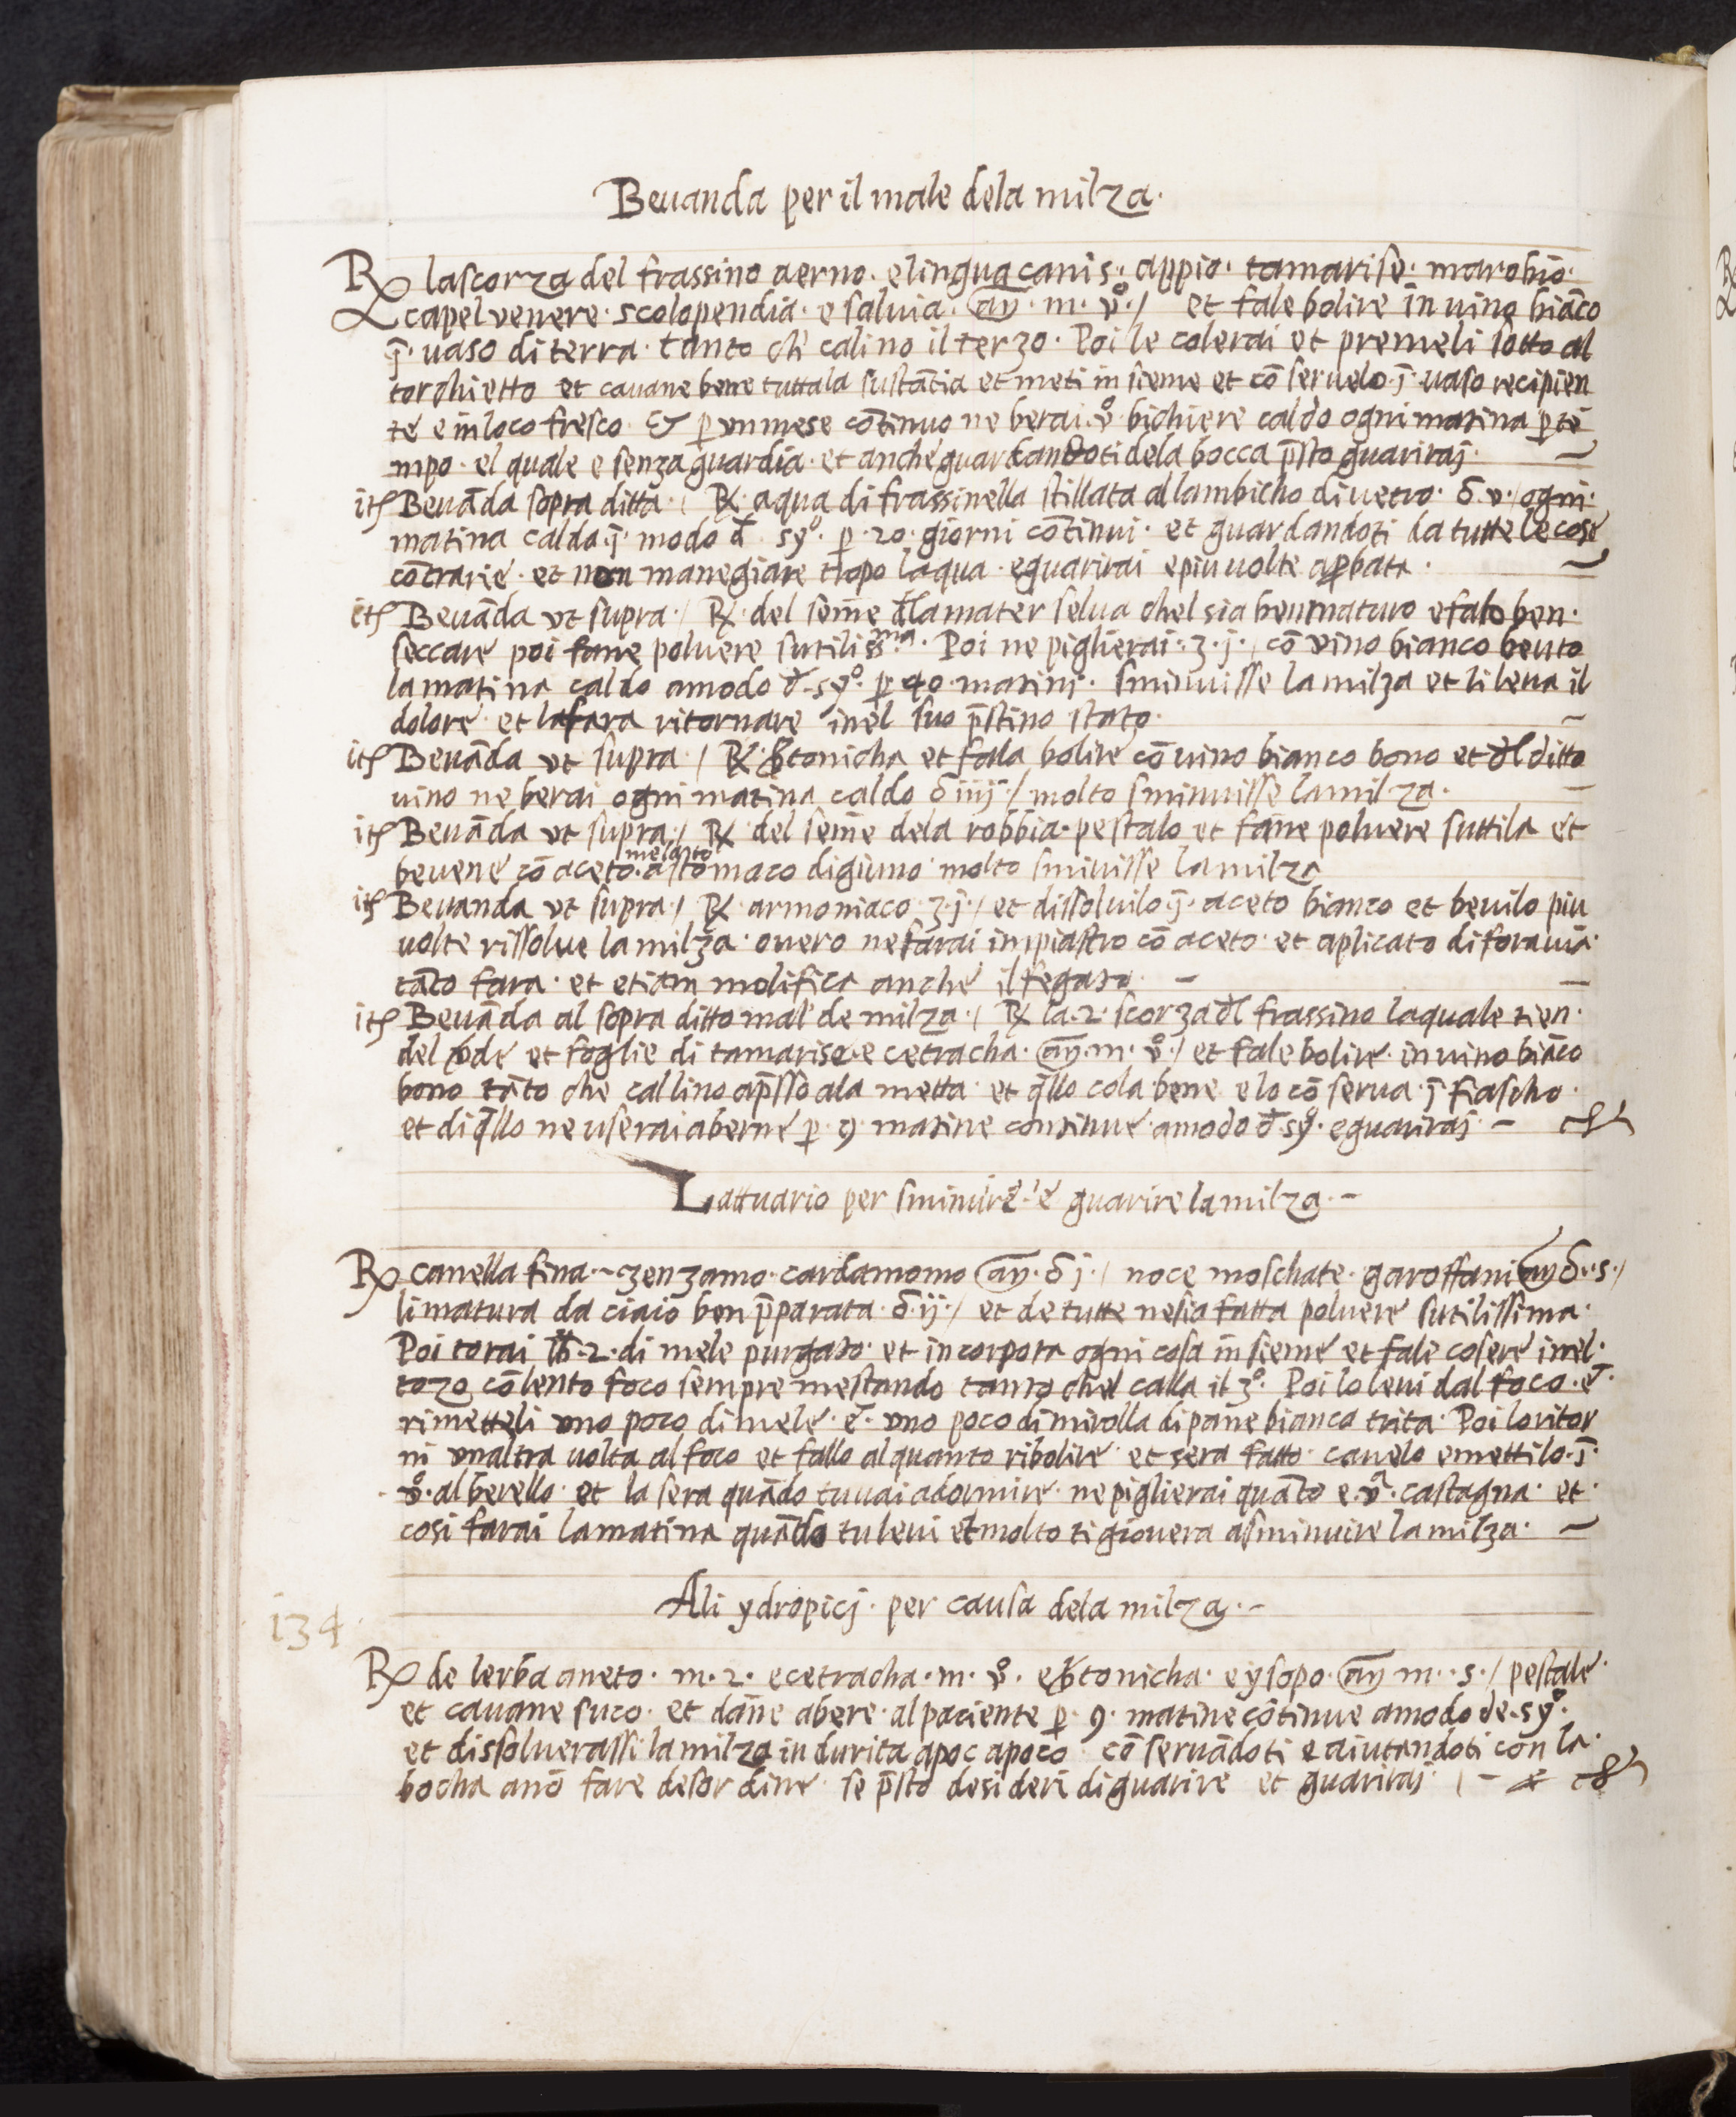 Beuanda per il male dela milza·
℞ lascorza del frassino aerno· e lingua canis· appio· tamarise· marobio·
capel venere· scolopendia· e saluia· an̄· m· v̊·/ et fale bolire in uino biāco
j̄· uaso di terra· tanto ch' calino il terzo· Poi le colerai et premeli sotto al
torchietto et cauane bene tutta la sustātia et meti in sieme et cō seruelo· j̄· uaso recipien
te e in loco fresco· & ꝑ un mese cōtinuo ne berai· v̊· bichiere caldo ogni matina ꝑ te
mpo· el quale e senza guardia· et anche guardandoti dela bocca p̄sto guariraj·
itꝭ Beuāda sopra ditta·/ ℞ aqua di frassinella stillata al lambicho di uetro· δ· v·/ ogni·
matina calda· j̄· modo đ syº· ꝑ· 20· giorni cōtinui· et guardandoti da tutte le cose
cōtrarie· et non manegiare tropo laqua· e guarirai e piu uolte aꝓbata·
itꝭ Beuāda vt supra·/ ℞· del sem̄e đla mater selua chel sia ben maturo e falo ben·
seccare poi fane poluere sutilissma· Poi ne piglierai· ʒ· j·/ cō vino bianco beuto
la matina caldo amodo đ· syº· ꝑ 40 matinj· sminuisse la milza et li leua il
dolore· et la fara ritornare inel suo p̄stino stato·
itꝭ Beuāda vt supra·/ ℞· btonicha et fala bolire cō uino bianco bono et đl ditto
uino ne berai ogni matina caldo δ iiij·/ molto sminuisse la milza·
itꝭ Beuāda vt supra·/ ℞ del sem̄e dela robbia· pestalo et fan̄e poluere suttila et
beuene cō aceto· melato a stomaco digiuno molto sminuisse la milza
itꝭ Beuanda vt supra·/ ℞ armoniaco· ʒ· j·/ et dissoluilo j̄· aceto bianco et beuilo piu
uolte rissolue la milza· ouero ne farai impiastro cō aceto· et aplicato di fora
tāto fara· et etiam molifica anche il fegato·
itꝭ Beuāda al sopra ditto mal de milza·/ ℞ la· 2· scorza đl frassino laquale tien·
del et foglie di tamarise e cetracha· an̄· m· v̊·/ et fale bolire· in uino biāco
bono tāto che callino ap̄sso ala metta· et q̄llo cola bene e lo cō serua· j̄· fiascho·
et di q̄llo ne userai aberne ꝑ· 9· matine continue· amodo đ syº· e guariraj·
Lattuario per sminuire· e guarire la milza·
℞ canella fina· zenzamo· cardamomo an̄· δ j·/ noce moschate· garoffani an̄ δ·s·/
limatura da ciaio ben p̄parata· δ· ij·/ et de tutte ne sia fatta poluere sutilissima·
Poi torai ℔· 2· di mele purgato· et incorpora ogni cosa in sieme et fale cosere inel·
tozo cō lento foco sempre mestando tanto chel calla il 3º· Poi lo leui dal foco· e·
rimetteli uno poco di mele· e· uno poco di mirolla di pane bianca trita· Poi lo ritor
ni unaltra uolta al foco et fallo alquanto ribolire et sera fatto· cauelo e mettilo· j̄·
v̊· alberello· et la sera quādo tu uai adormire· ne piglierai quāto e· vª· castagna· et·
cosi farai la matina quādo tu leui et molto ti giouera asminuire la milza·
Ali ydropicj· per causa dela milza·
134
℞ de lerba aneto· m· 2· e cetracha· m· v̊· e btonicha· e ysopo· an̄ m· s·/ pestale·
et cauane suco· et dan̄e abere· al paciente ꝑ· 9· matine cōtinue amodo de· syº·
et dissoluerassi la milza in durita apoc apoco· cō seruādoti e aiutandoti con la·
bocha a nō fare desordine· se p̄sto desideri di guarire et guariraj·